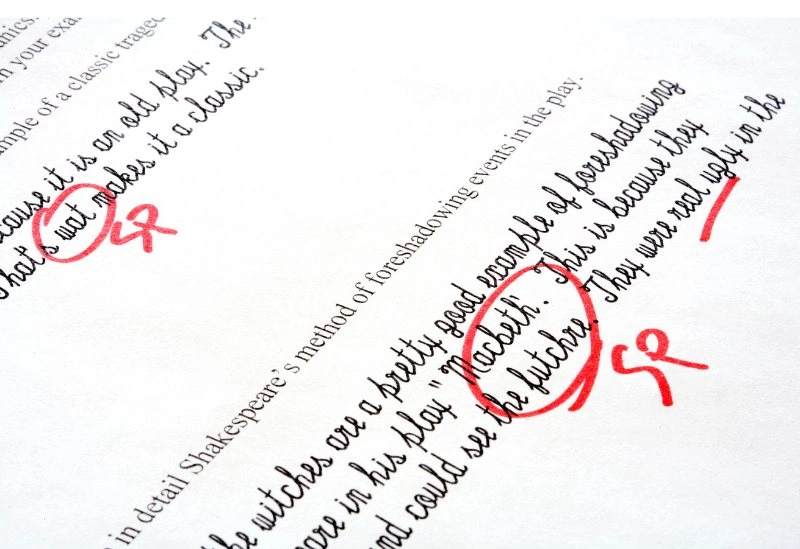 n your exa
mple of a classic traged
ecause it is an old play. The
That's wat makes it a classic.
SP
in detail Shakespeare's method of foreshadowing events in the play.
he witches are a pretty good example of foreshadowing
eare in his play "Macbeth". This is because they
nd could see the futchre. They were real ugly in the
SP